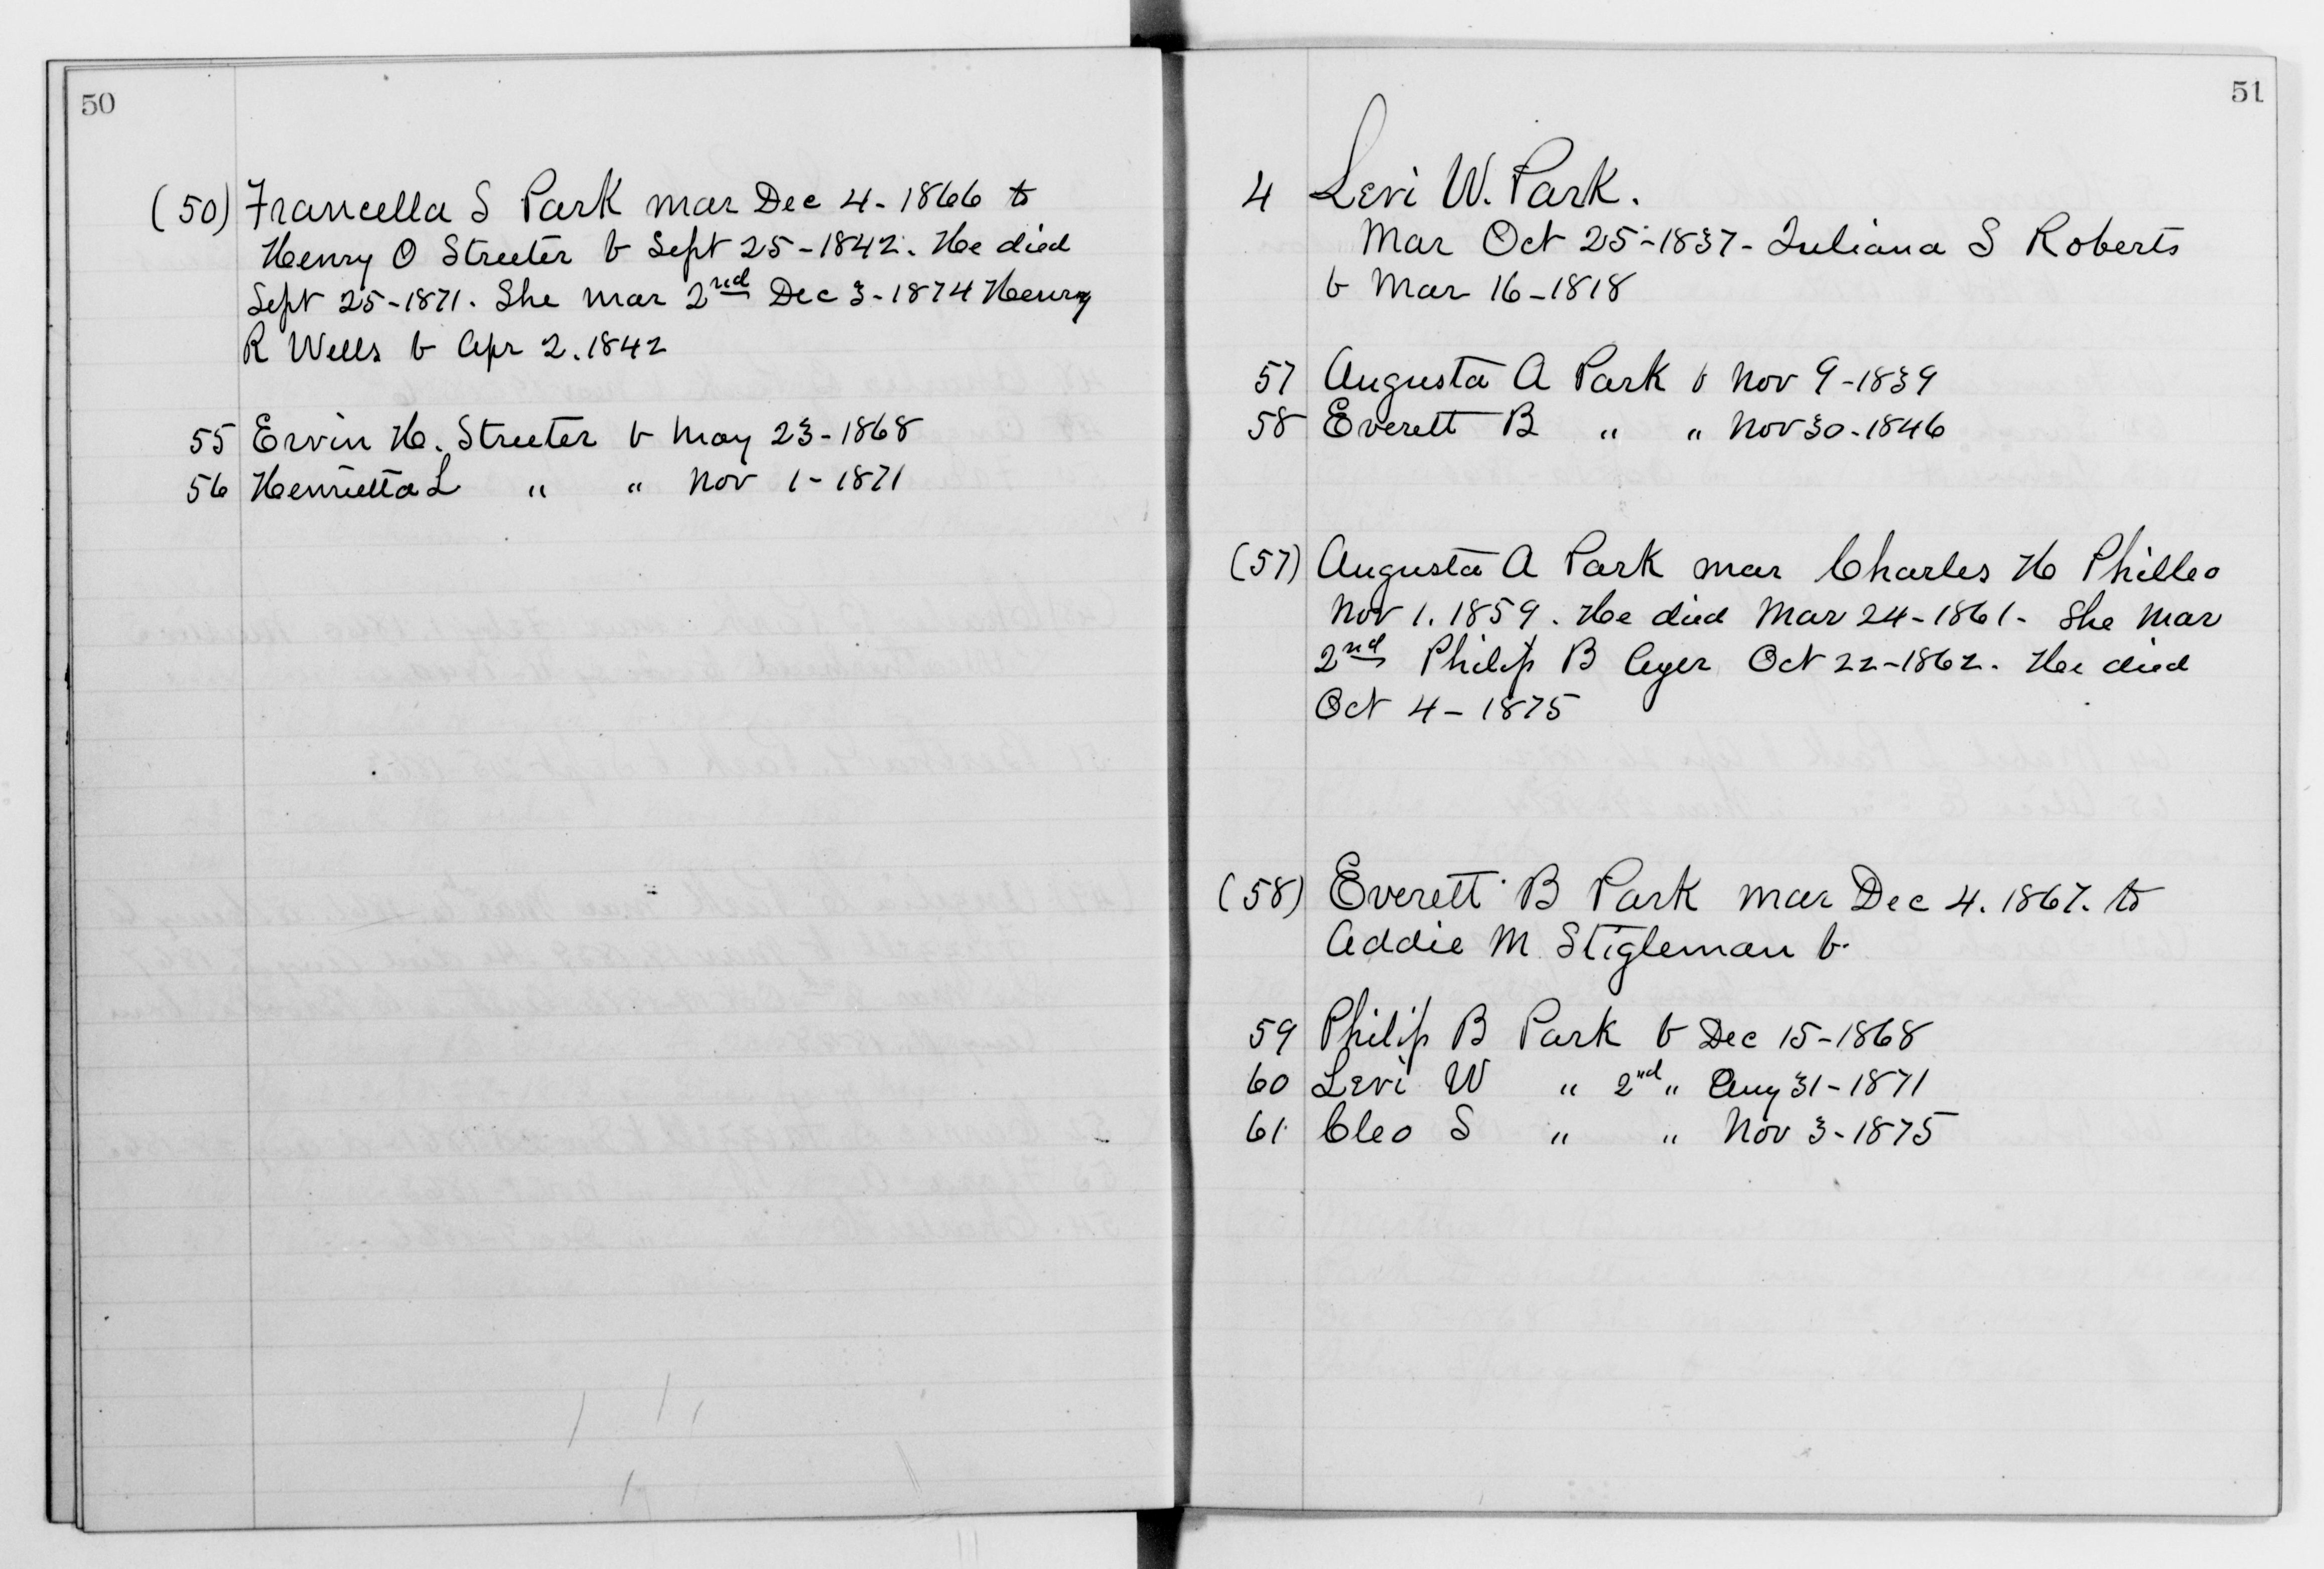 50
(50) Francella S Park mar Dec 4 - 1866 to
Henry O Streeter b Sept 25 - 1842. He died
Sept 25 - 1871. She mar 2nd Dec 3 - 1874 Henry
R Wells b Apr 2. 1842
55 Ervin H. Streeter b May 23 - 1868
56 Henrietta L " " Nov 1 - 1871
51
4 Levi W. Park.
Mar Oct 25 - 1837 - Juliana S Roberts
b Mar 16 - 1818
57 Augusta A Park b Nov 9 - 1839
58 Everett B " " Nov 30 - 1846
(57) Augusta A Park mar Charles H Philleo
Nov 1. 1859. He died Mar 24 - 1861 - She mar
2nd Philip B Ayer Oct 22 - 1862. He died
Oct 4 - 1875
(58) Everett B Park mar Dec 4. 1867. to
Addie M Stigleman b.
59 Philip B Park b Dec 15 - 1868
60 Levi W " 2nd " Aug 31 - 1871
61 Cleo S " " Nov 3 - 1875